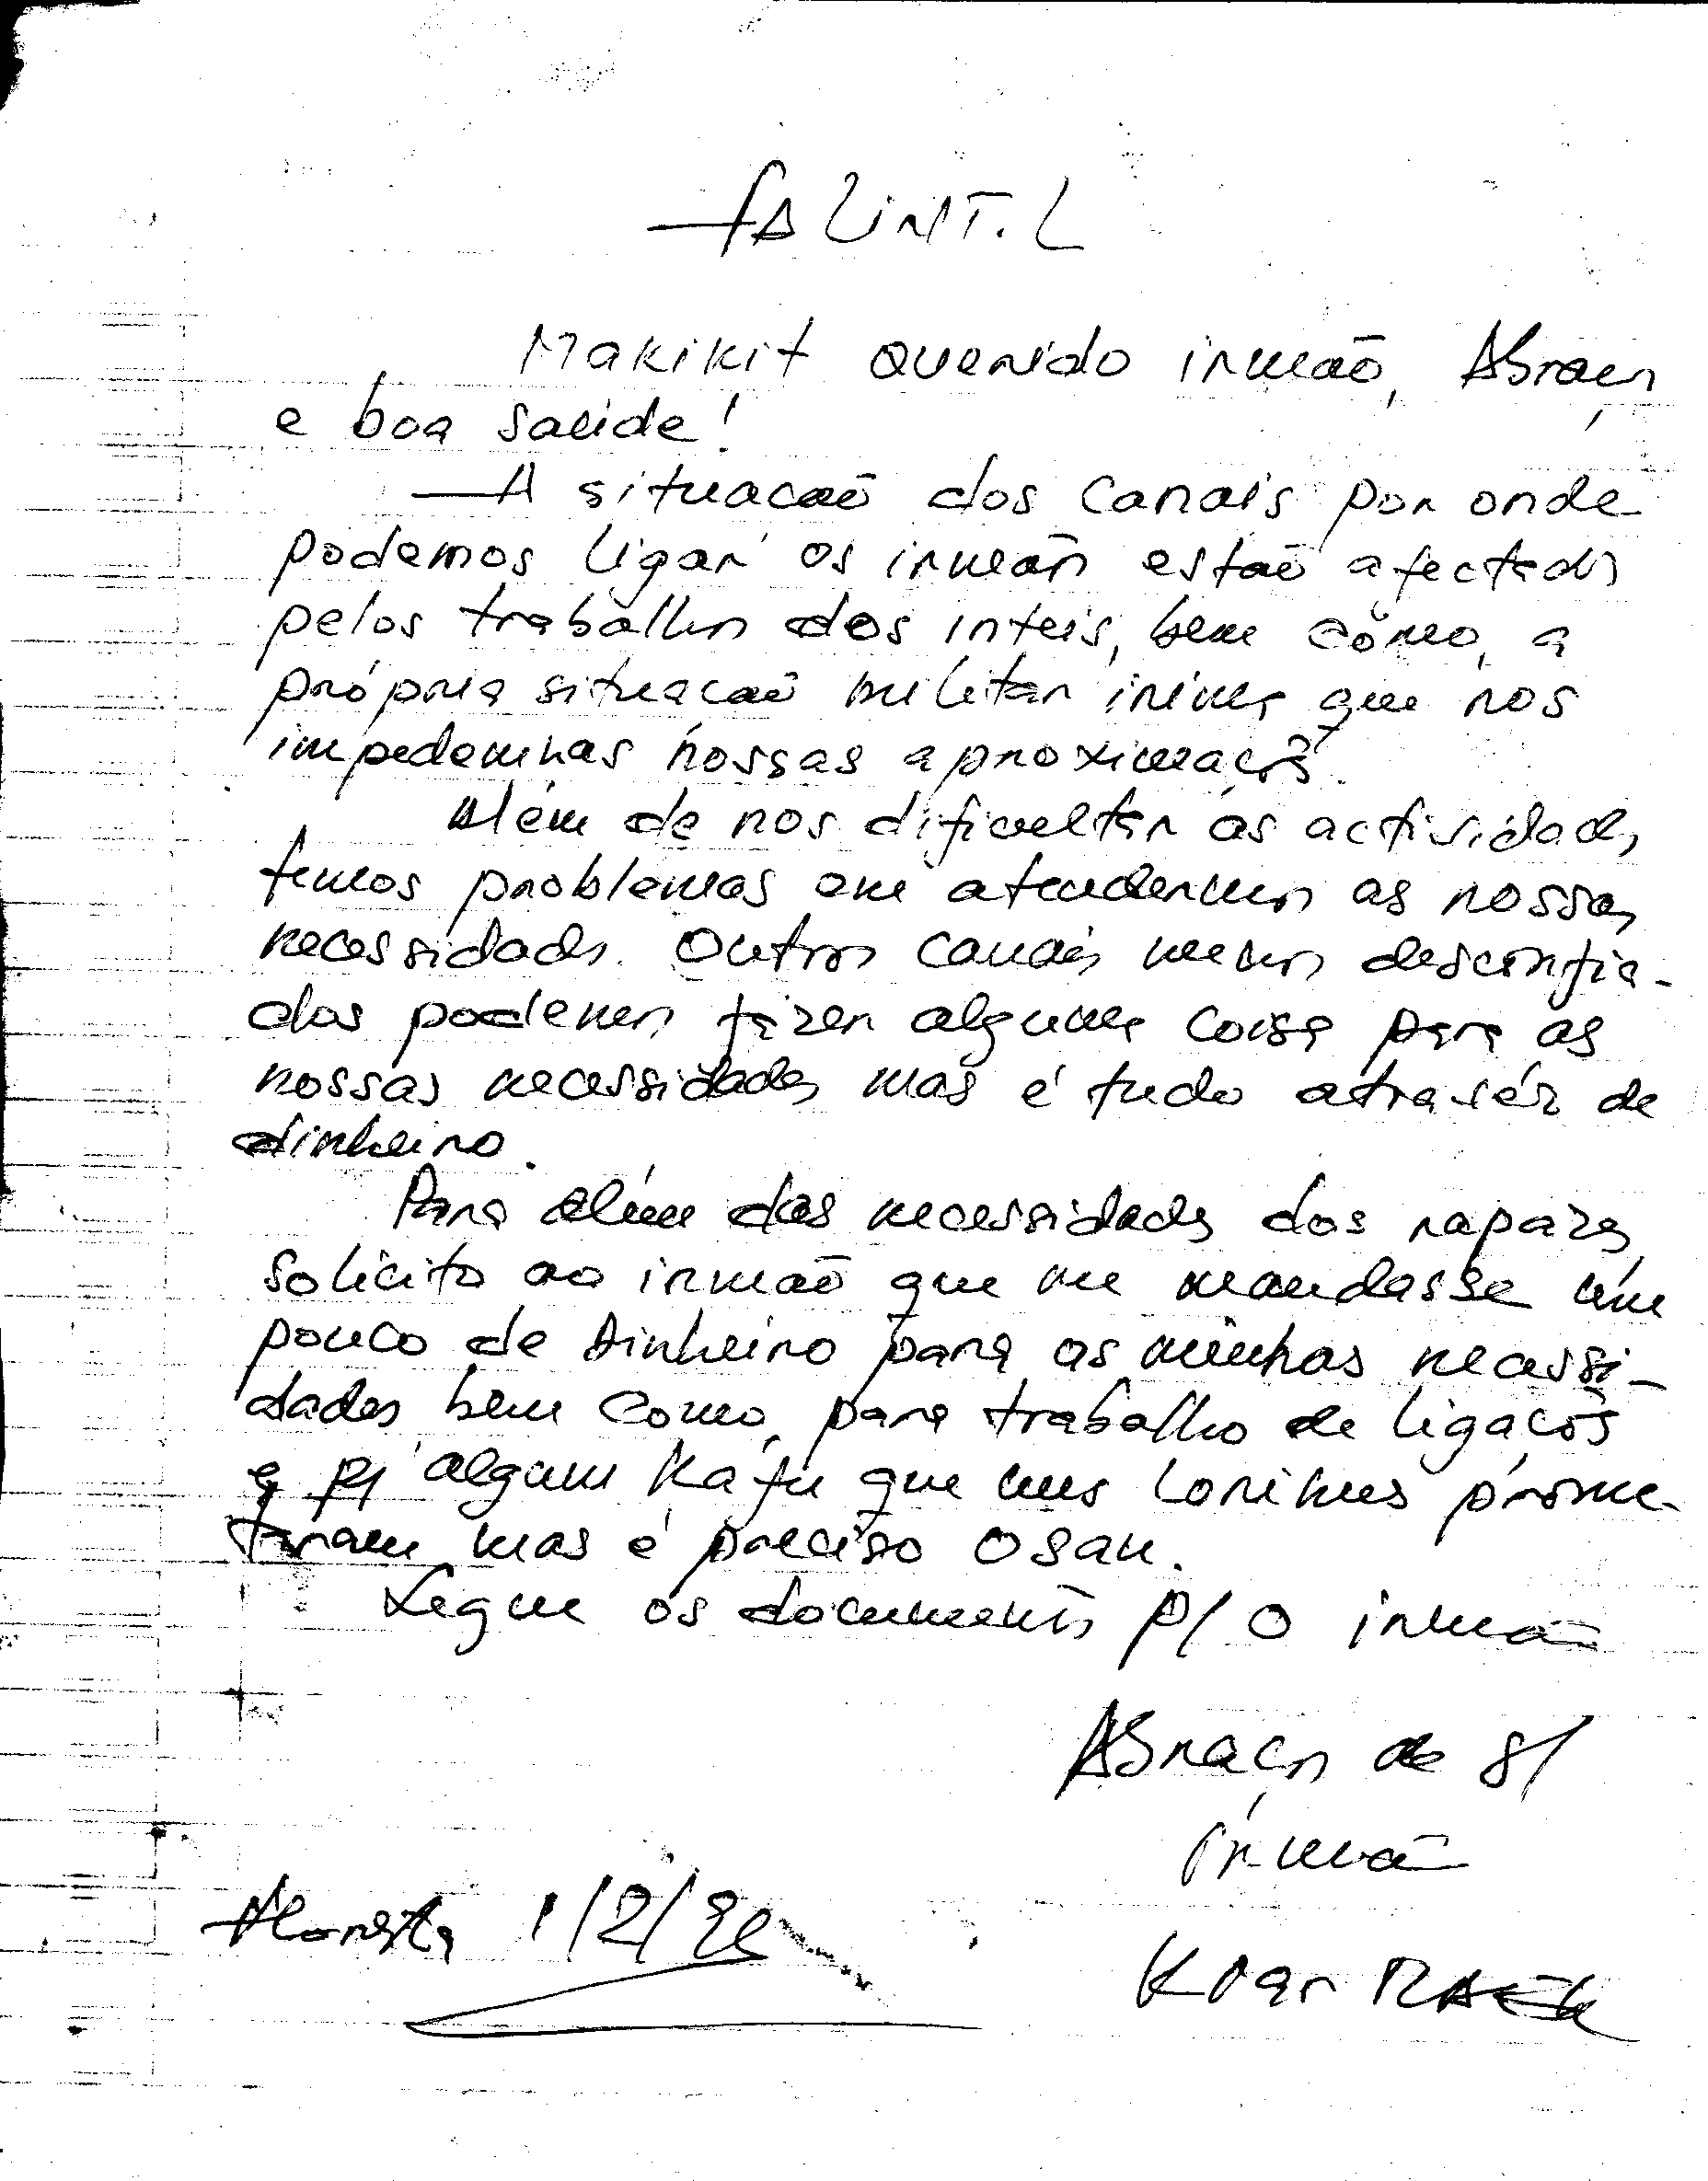 FALINT.L
Makikit querido irmão, Abraços
e boa saúde!
— A situacaō dos canais por onde
podemos ligar os irmãos estaō afectados
pelos trabalhos dos inteis, bem como, a
própria situacaō militar inimiga que nos
impedem nas nossas aproximações.
Além de nos dificultar as actividades,
temos problemas em atendermos as nossas
necessidades. Outros canais menos desconfia-
dos podem fazer alguma coisa para as
nossas necessidades mas é tudo através de
dinheiro.
Para além das necessidades dos rapazes,
solicito ao irmaō que me mandasse um
pouco de dinheiro para as minhas necessi-
dades bem como, para trabalho de ligacōes
e p/ algum Katu que uns Lorikus prome-
teram mas é preciso Osan.
Segue os documentos p/ O irmão
Abraços de s/
irmão
1/2/